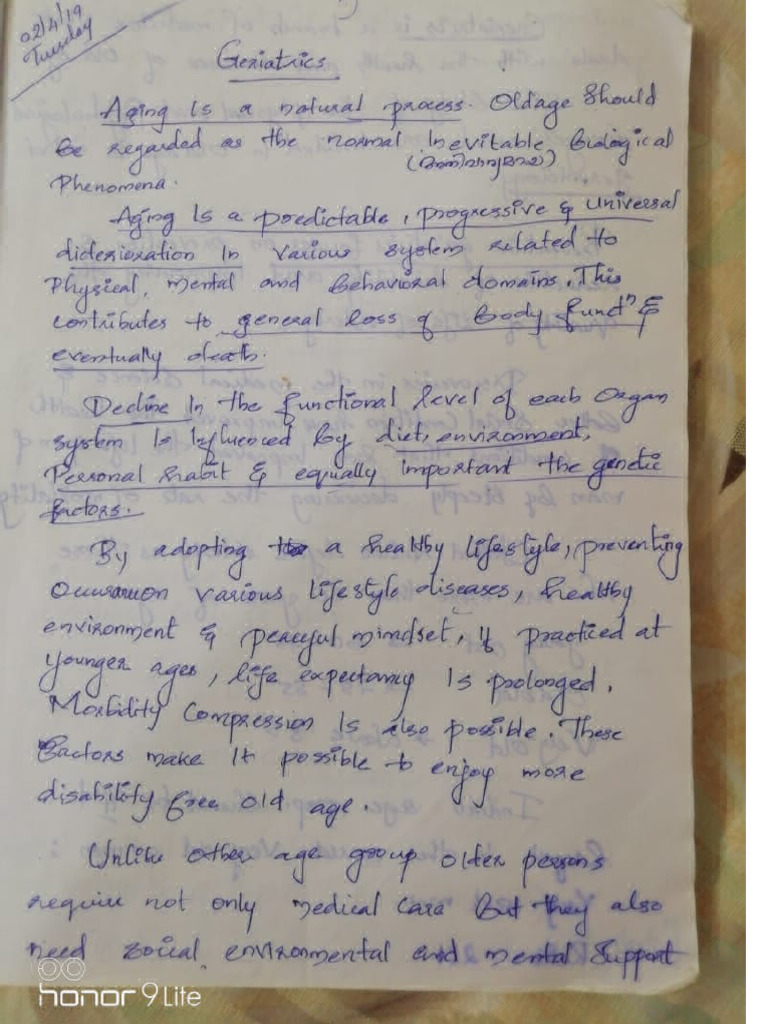 02/4/19
Tuesday
Geriatrics
Aging Is a natural process. Oldage Should
be regarded as the normal Inevitable Biological
Phenomena.
Aging Is a predictable, progressive & Universal
diderioration In various system related to
Physical, mental and Behavioral domains. This
contributes to general loss of Body functn &
eventually death.
Decline In the functional level of each Organ
system Is Influenced by diet, environment,
Personal habit & equally important the genetic
factors.
By adopting a healthy lifestyle, preventing
various lifestyle diseases, healthy
environment & peaceful mindset, If practiced at
younger ages, life expectancy Is prolonged.
Morbidity Compression Is also possible. These
factors make It possible to enjoy more
disability free old age.
Unlike other age group older persons
require not only medical care But they also
need social, environmental and mental Support
honor 9 Lite